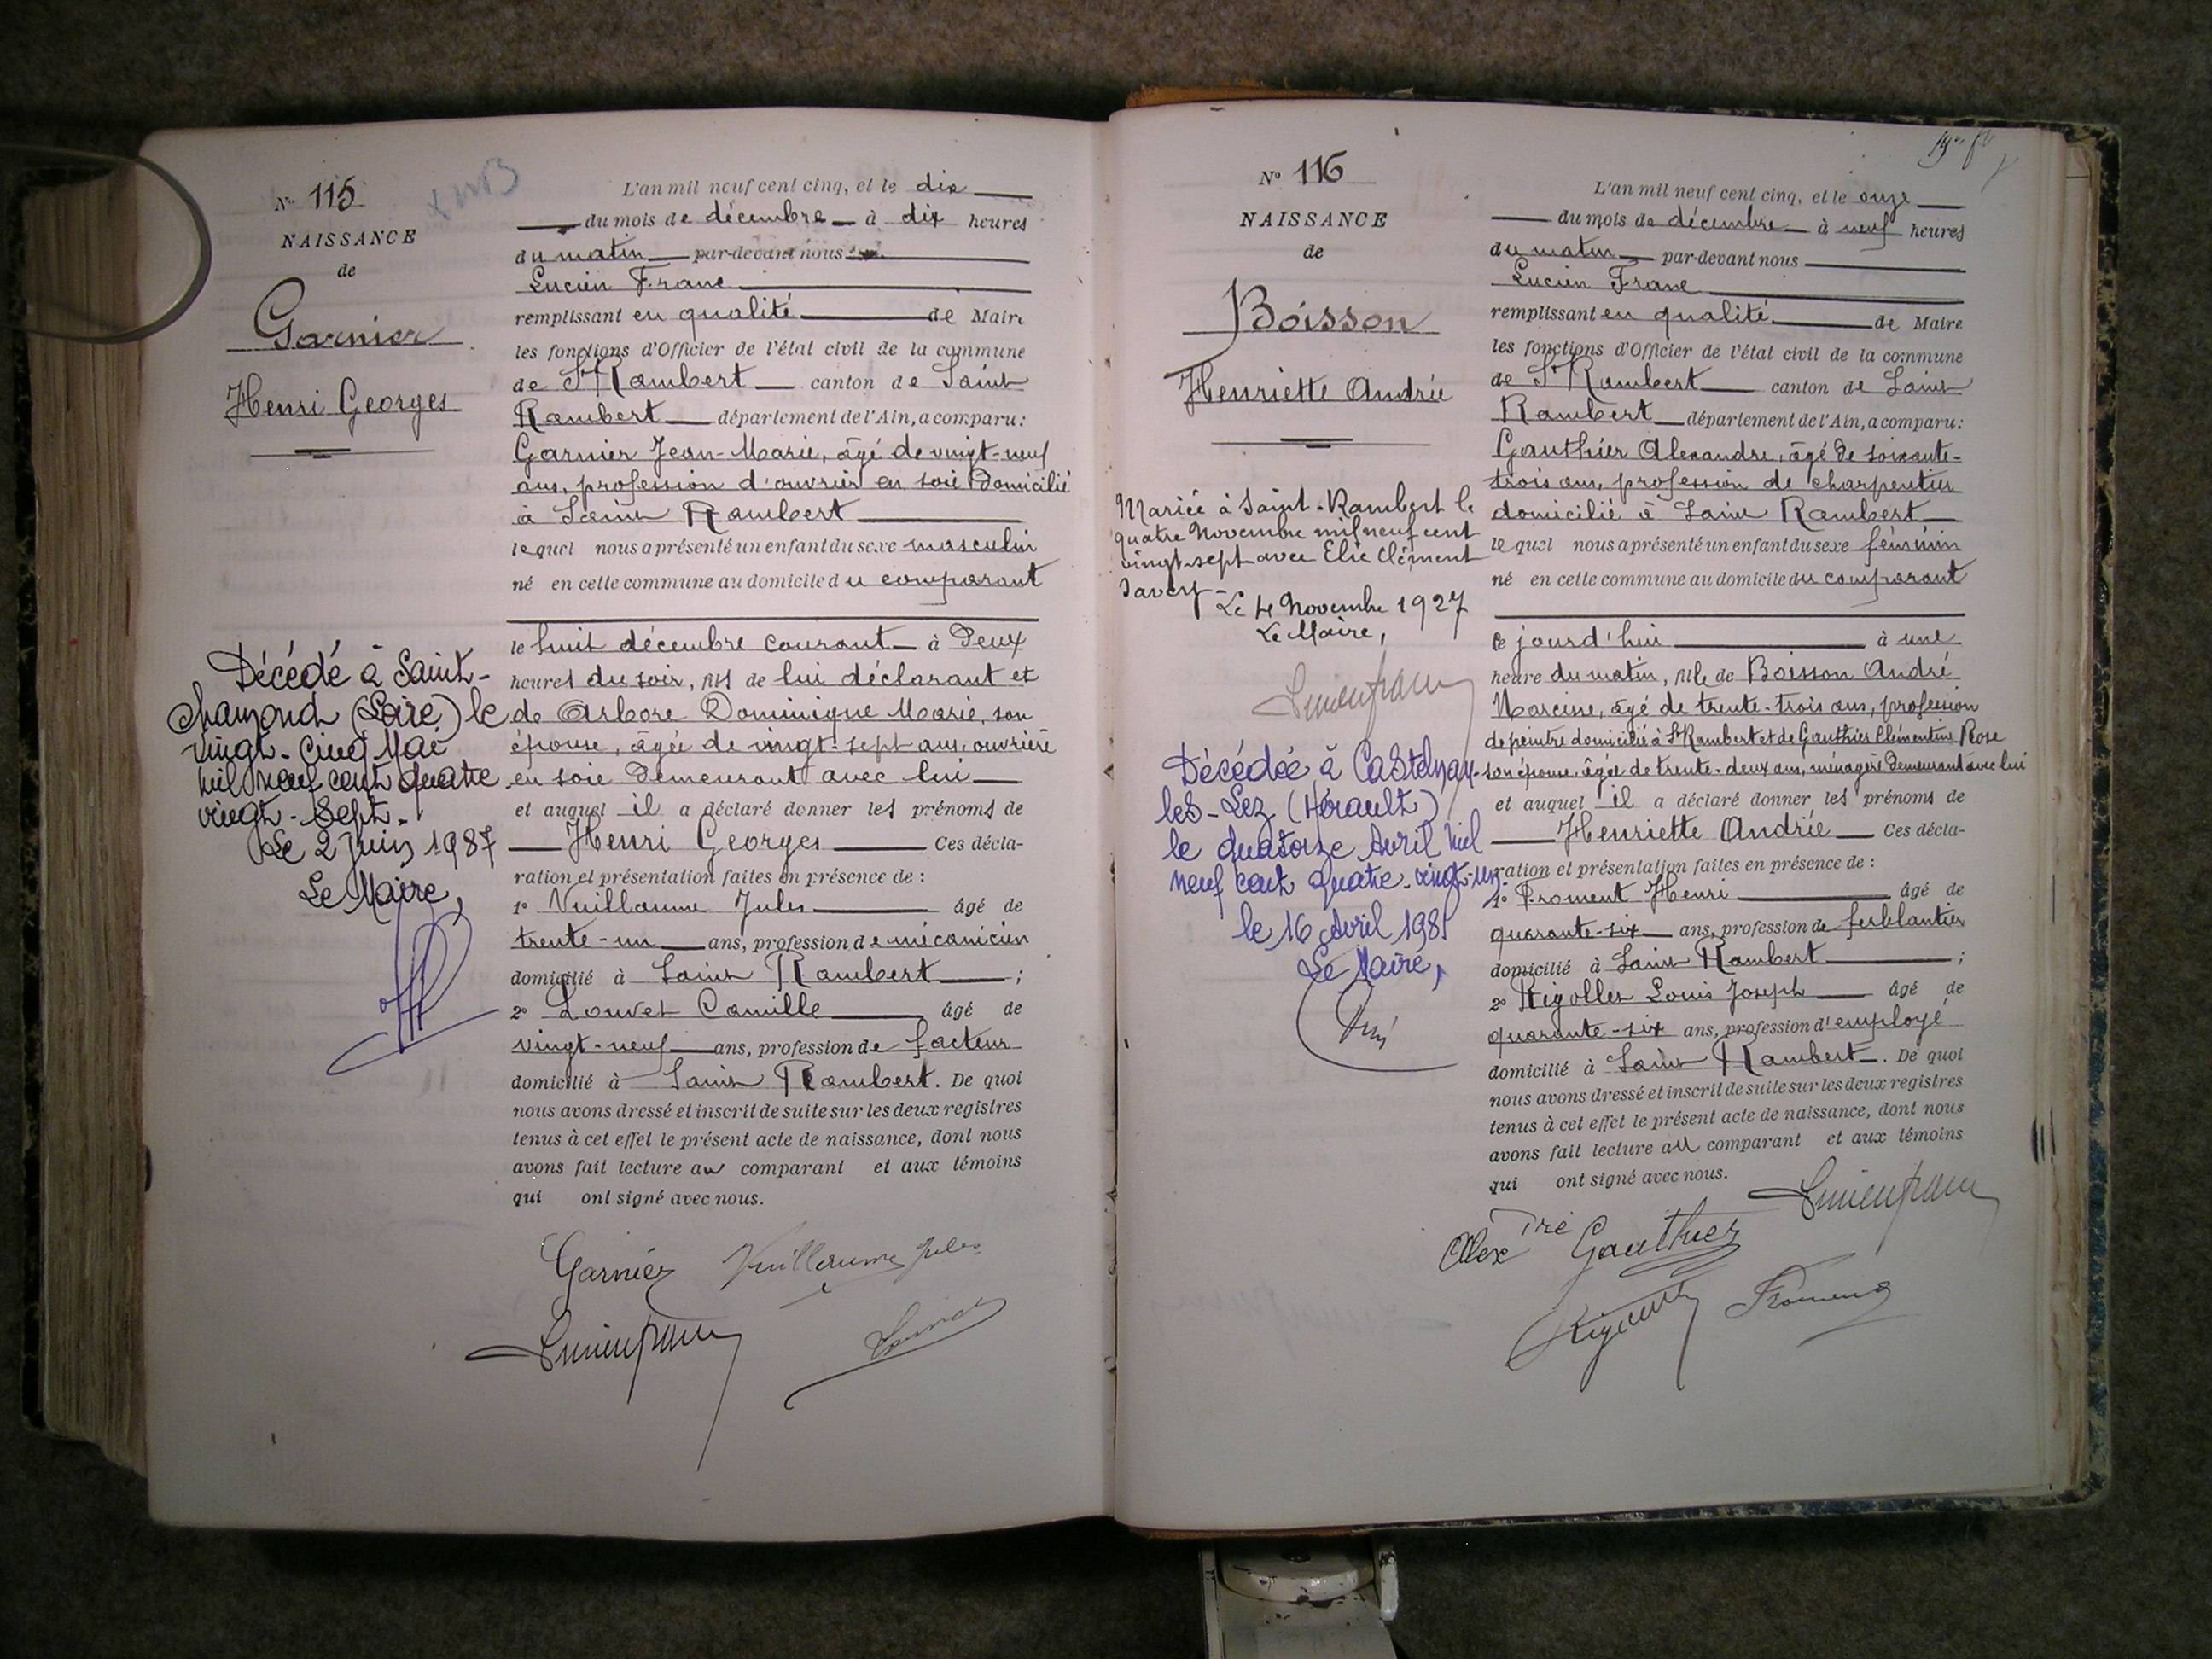 N° 115
NAISSANCE
de
Garnier
Henri Georges
Décédé à Saint-
Chamond (Loire) le
vingt-cinq Mai
mil neuf cent quatre
vingt-sept.
Le 2 Juin 1987
Le Maire,
L'an mil neuf cent cinq, et le dix
du mois de décembre à dix heures
du matin par-devant nous
Lucien Franc
remplissant en qualité de Maire
les fonctions d'Officier de l'état civil de la commune
de St Rambert canton de Saint
Rambert département de l'Ain, a comparu:
Garnier Jean-Marie, âgé de vingt-neuf
ans, profession d'ouvrier en soie domicilié
à Saint Rambert
lequel nous a présenté un enfant du sexe masculin
né en cette commune au domicile du comparant
le huit décembre courant à deux
heures du soir, fils de lui déclarant et
de Arbore Dominique Marie, son
épouse, âgée de vingt-sept ans, ouvrière
en soie demeurant avec lui
et auquel il a déclaré donner les prénoms de
Henri Georges Ces décla-
ration et présentation faites en présence de :
1° Vuillaume Jules âgé de
trente-un ans, profession de mécanicien
domicilié à Saint Rambert ;
2° Louvet Camille âgé de
vingt-neuf ans, profession de facteur
domicilié à Saint Rambert. De quoi
nous avons dressé et inscrit de suite sur les deux registres
tenus à cet effet le présent acte de naissance, dont nous
avons fait lecture au comparant et aux témoins
qui ont signé avec nous.
Garnier Vuillaume Jules
Lucien Franc Louvet
N° 116
NAISSANCE
de
Boisson
Henriette Andrée
Mariée à Saint-Rambert le
quatre Novembre mil neuf cent
vingt-sept avec Elie Clément
Savey-
Le 4 Novembre 1927
Le Maire,
Lucien Franc
Décédée à Castelnau-
les-Lez (Hérault)
le quatorze Avril mil
neuf cent quatre-vingt-un.
le 16 Avril 1981
Le Maire,
L'an mil neuf cent cinq, et le onze
du mois de décembre à neuf heures
du matin par-devant nous
Lucien Franc
remplissant en qualité de Maire
les fonctions d'Officier de l'état civil de la commune
de St Rambert canton de Saint
Rambert département de l'Ain, a comparu:
Gauthier Alexandre, âgé de soixante-
trois ans, profession de charpentier
domicilié à Saint Rambert
lequel nous a présenté un enfant du sexe féminin
né en cette commune au domicile du comparant
ce jourd'hui à une
heure du matin, fille de Boisson André
Narcisse, âgé de trente-trois ans, profession
de peintre domicilié à St Rambert et de Gauthier Clémentine Rose
son épouse, âgée de trente-deux ans, ménagère demeurant avec lui
et auquel il a déclaré donner les prénoms de
Henriette Andrée Ces décla-
ration et présentation faites en présence de :
1° Froment Henri âgé de
quarante-six ans, profession de ferblantier
domicilié à Saint Rambert ;
2° Rigollet Louis Joseph âgé de
quarante-six ans, profession d'employé
domicilié à Saint Rambert. De quoi
nous avons dressé et inscrit de suite sur les deux registres
tenus à cet effet le présent acte de naissance, dont nous
avons fait lecture au comparant et aux témoins
qui ont signé avec nous.
Lucien Franc
Alexdre Gauthier
Rigollet Froment